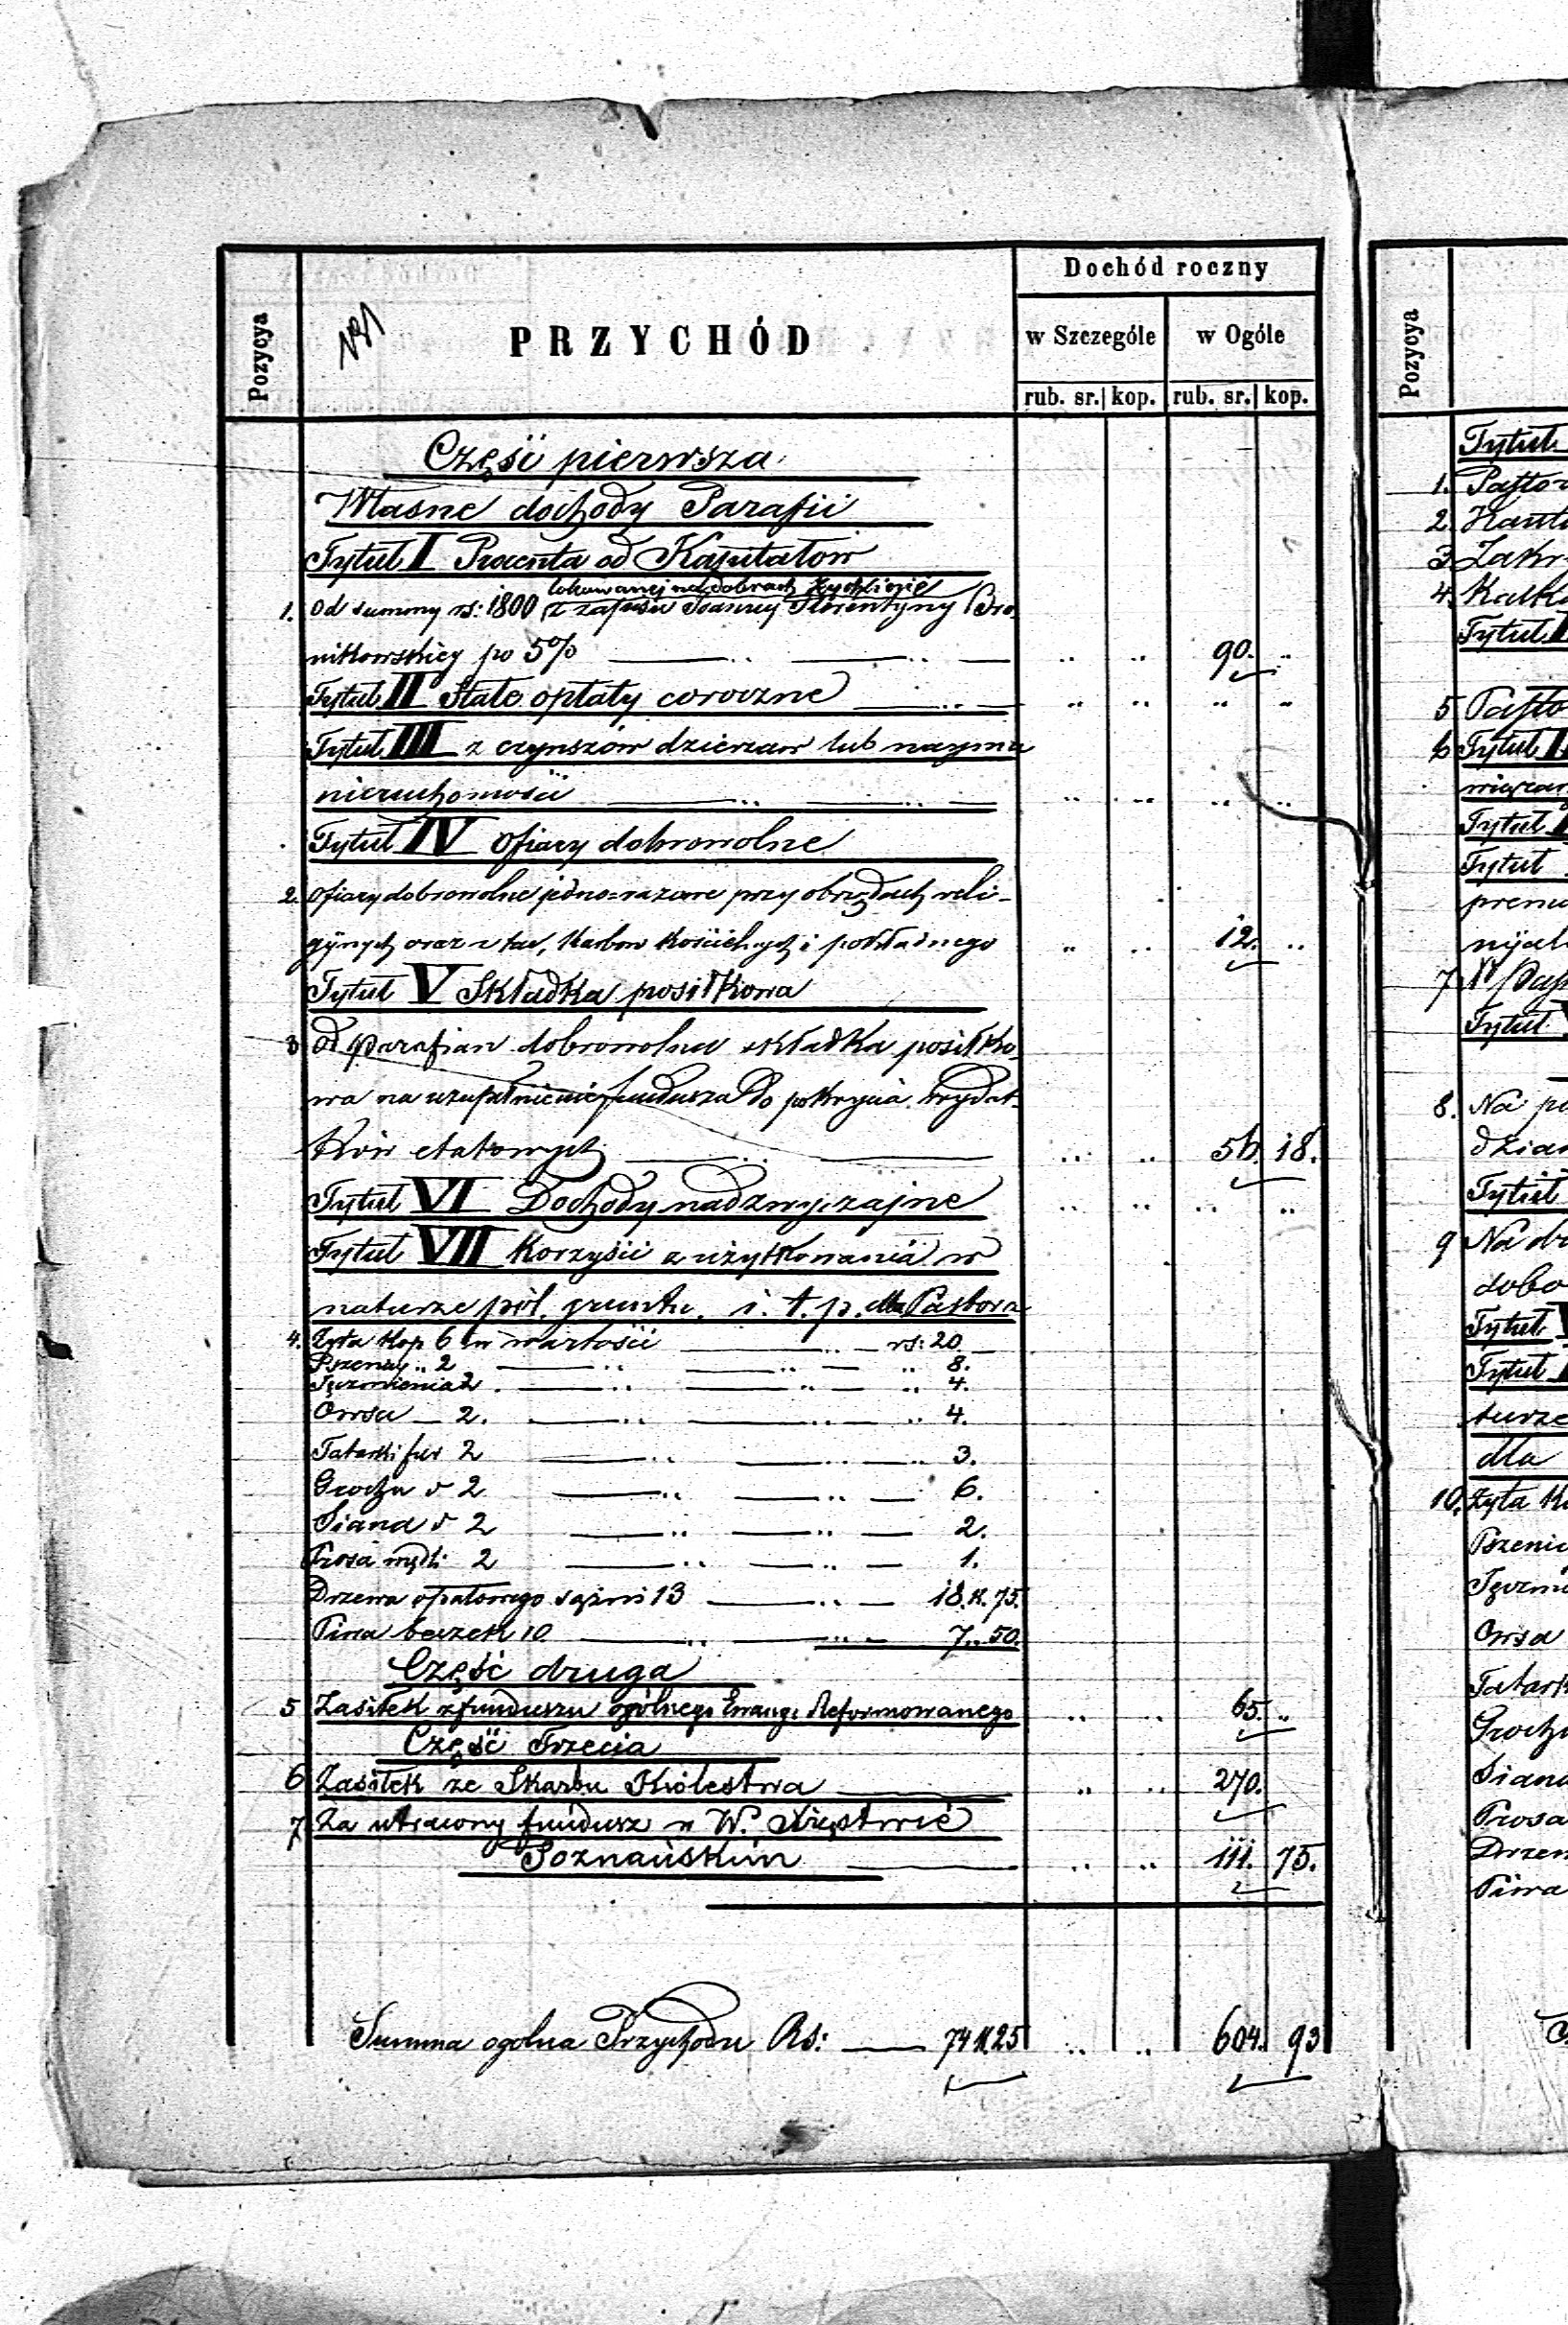 Dochód roczny
Pozycya
PRZYCHÓD
w Szczególe w Ogóle
rub. sr. kop. rub. sr. kop.
Część pierwsza
Własne dochody Parafii
Tytuł I Procenta od Kapitałów
lokowanej na dobrach Żychlinie
1. Od summy rs: 1800 z zapisu Joanny Florentyny Bro-
nikowskiey po 5% 90. ..
Tytuł II Stałe opłaty coroczne
Tytuł III z czynszów dzierżaw lub najmu
nieruchomości
Tytuł IV Ofiary dobrowolne
2. Ofiary dobrowolne jedno-razowe przy obrzędach reli-
gijnych oraz z tac, Karbon Kościelnych i pokładnego 12. ..
Tytuł V Składka posiłkowa
3 Od Parafian dobrowolna składka posiłko-
wa na uzupełnienie funduszu do pokrycia wydat-
ków etatowych 56. 18.
Tytuł VI Dochody nadzwyczajne
Tytuł VII Korzyści z użytkowania w
naturze pól, gruntu, i. t. p. dla Pastora
4. Żyta Kop 6 w wartości rs: 20
Pszenicy .. 2 .. 8.
Jęczmienia 2 .. 4.
Owsa 2. .. 4.
Tatarki fur 2 .. 3.
Grochu 2 6.
Siana 2 2.
Prosa 2 1.
Drzewa opałowego sążni 13 18. k. 75.
Piwa beczek 10 7 .. 50.
Część druga
5 Zasiłek z funduszu ogólnego Ewang: Reformowanego 65. ..
Część Trzecia
6 Zasiłek ze Skarbu Królestwa 270.
7 Za utracony fundusz w W. Xięstwie
Poznańskim 111. 75.
Summa ogolna Przychodu Rs: 74 k. 25 604. 93
Pozycya
Tytuł
1.
2.
3
4.
Tytuł
5
6 Tytuł
Tytuł
Tytuł
7
Tytuł
8. Na
Tytuł
9 Na
Tytuł
Tytuł
dla
10. Żyta
Owsa
Siana
Prosa
Piwa